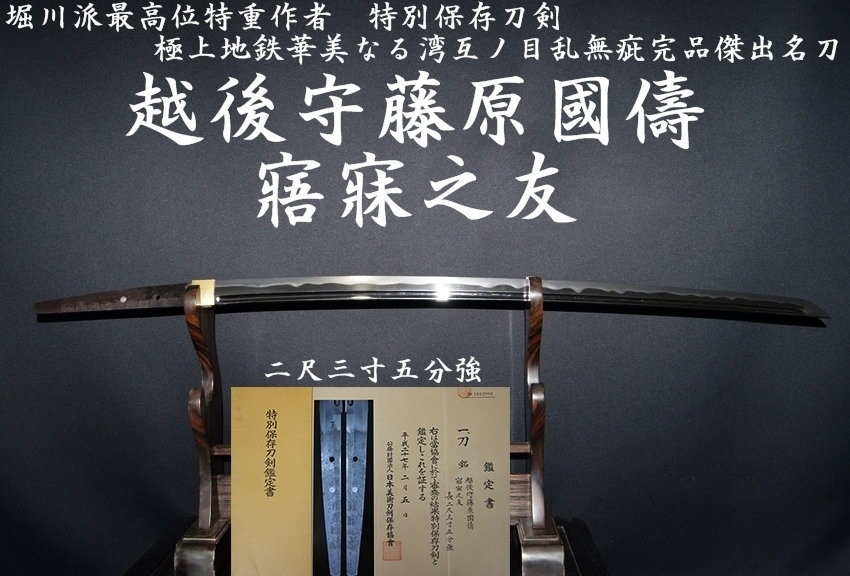 堀川派最高位特重作者　特別保存刀剣
極上地鉄華美なる湾互ノ目乱無疵完品傑出名刀
越後守藤原國儔
寤寐之友
二尺三寸五分強
特別保存刀剣鑑定書
鑑定書
一、刀 銘 越後守藤原国儔
寤寐之友
長二尺三寸五分強
右は當協會に於て審査の結果特別保存刀剣と
鑑定しこれを証する
平成二十七年二月五日
公益財団法人日本美術刀剣保存協會